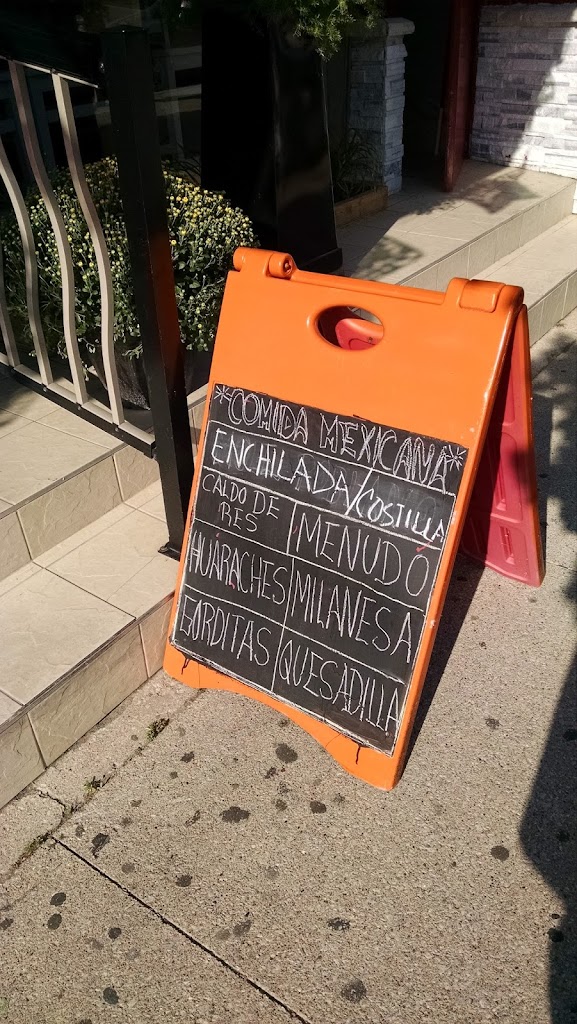 *COMIDA MEXICANA*
ENCHILADA/COSTILLA
CALDO DE
RES
MENUDO
HUARACHES
MILANESA
GORDITAS
QUESADILLA